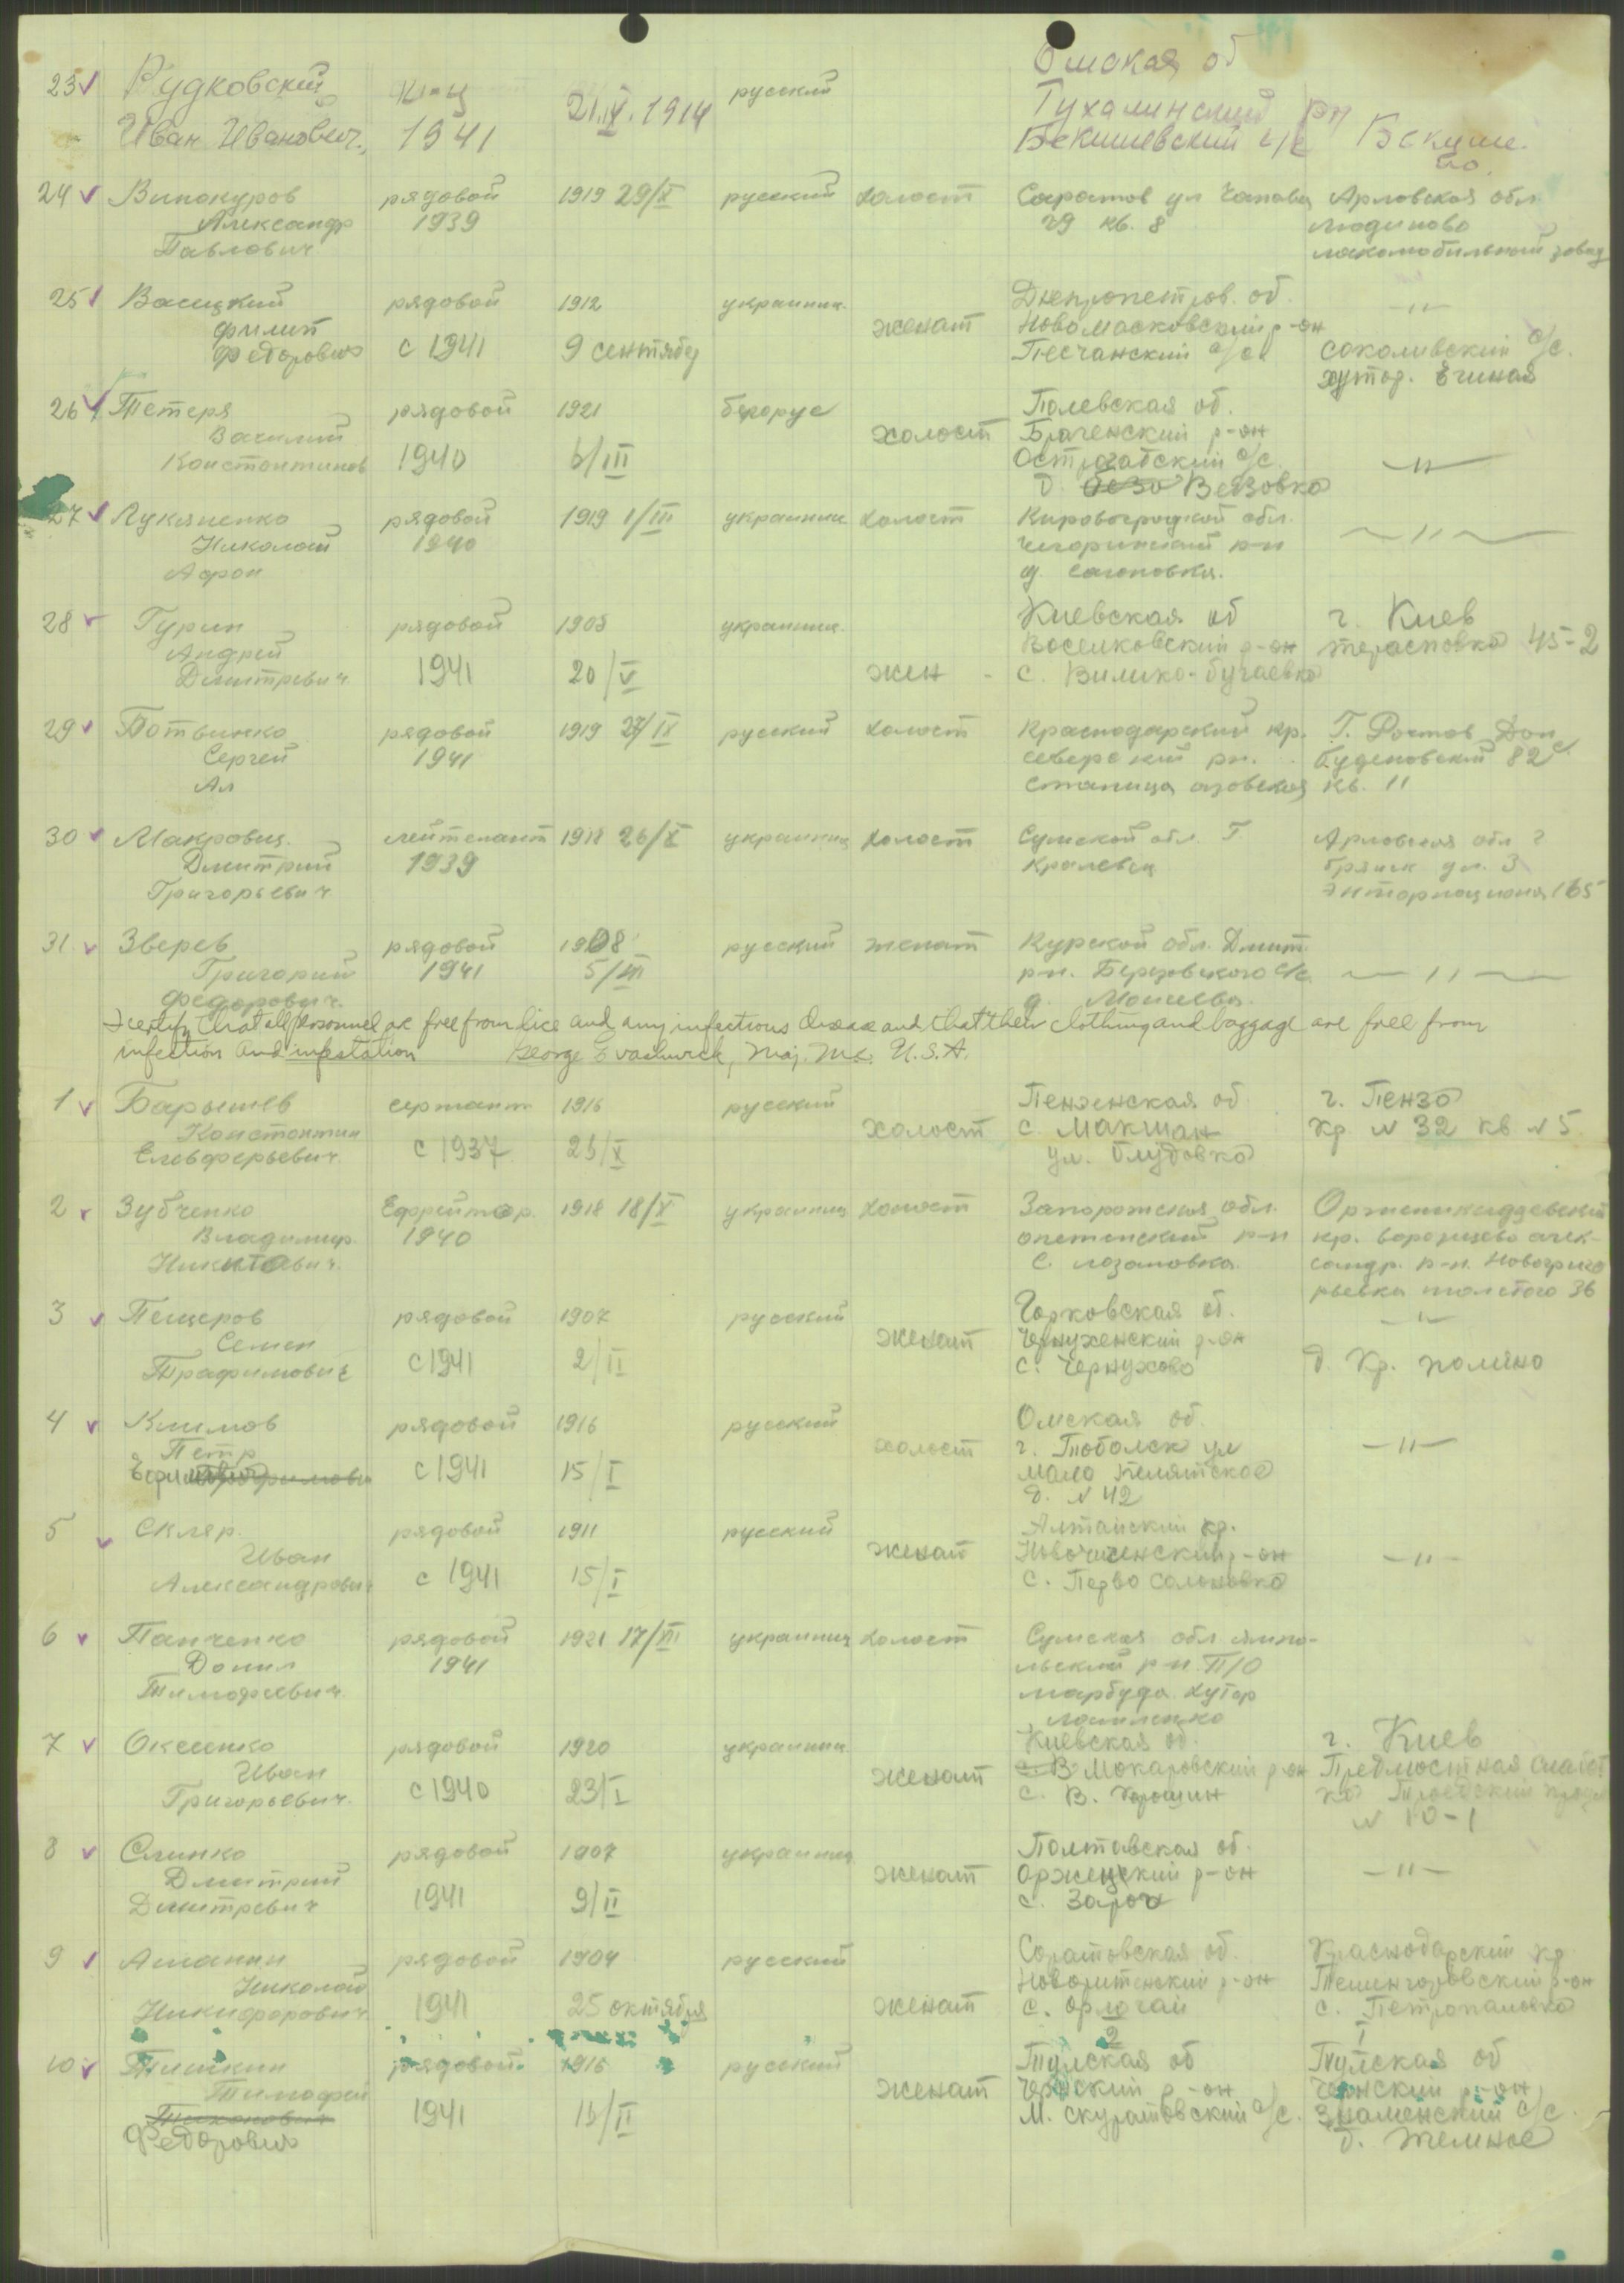 23 Рудковский кр-ц 21.IX.1914 русский Омская об
Иван Иванович. 1941 Тухалинский рн
Бекишевский с/с Бекише
во.
24 Винокуров рядовой 1919 29/X русский холост Саратов ул Чапаева Арловская обл.
Александр 1939 79 кв. 8 Людиново
Павлович лакомобильный завод
25 Васицкий рядовой 1912 украинец Днепропетров. об. -"-
Филип женат Новомосковский р-он
Федорович с 1941 9 сентября Песчанский с/с Соколивский с/с.
хутор.
26 Тетеря рядовой 1921 белорус Полевская об.
Василий холост Брагенский р-он
Константинов 1940 6/III Острогатский с/с -"-
д. Везовка
27 Лукяненко рядовой 1919 1/III украинец холост Кировоградской обл. -"-
Николай 1940 Чигоринский р-н
Афон д. Сагоновка.
28 Гурин рядовой 1905 украинец Киевская об г. Киев
Андрей Василковский р-он терасповка 45-2
Дмитревич 1941 20/V жен - с. Вилико-Бугаевка
29 Потвинко рядовой 1919 27/IX русский холост Краснодарский кр. Г. Ростов Дон
Сергей 1941 северский рн. Буденовский 82
Ал станица азовская кв. 11
30 Макровец. лейтенант 1918 26/X украинец холост Сумской обл. Г. Арловская обл г
Дмитрий 1939 Кралевец Брянск ул. 3
Григорьевич Энторнационал 165
31. Зверев рядовой 1908 русский женат Курской обл. Дмит.
Григорий 1941 5/III рн. Березовского с/с. -"-
Федорович. д. Моисеева.
I certify that all personnel are free from lice and any infectious disease and that their clothing and baggage are free from
infection and infestation George Evashwick, Maj. M.C. U.S.A.
1 Барышев сержант 1916 русский Пензенская об г. Пенза
Константин холост с. Макшан кр. N 32 кв N 5
Елевферьевич. с 1937 25/X ул. Глудовка
2 Зубченко Ефрейтор. 1918 18/V украинец холост Запорожская обл. Орженикидзевский
Владимир. 1940 р-н кр. Воронцево алек-
Никитович. с. лозановка. сандр. р-н. Новогриго
рьевка толстого 36
3 Пещеров рядовой 1907 русский Горковская об. -"-
Семен женат Чернухенский р-он
Трафимович с 1941 2/II с. Чернухово д. Кр. поляно
4 Климов рядовой 1916 русский Омская об.
Петр холост г. Тоболск ул -"-
Ефимович с 1941 15/I мало Пилятская
д. N 42
5 Скляр. рядовой 1911 русский Алтайский кр.
Иван женат Новочиченский р-он -"-
Александрович с 1941 15/I с. Перво Солоновка
6 Панченко рядовой 1921 17/III украинец холост Сумская обл ямпо-
Данил 1941 льский р-н. П/О
Тимофеевич. марбуда хутор
7 Оксенко рядовой 1920 украинец Киевская об. г. Киев
Иван женат Мокаровский р-он Предмостная слабот
Григорьевич. с 1940 23/I с. В. Карашин ка
N 10-1
8 Слинко рядовой 1907 украинец Полтавская об.
Дмитрий женат Оржецкий р-он -"-
Дмитревич 1941 9/II с. Зарог
9 Ананин рядовой 1904 русский Соратовская об. Краснодарский кр
Николай Новоритенский р-он Темингоровский р-он
Никифорович. 1941 25 октября женат с. Орлогай с. Петропаловка
2 1
10 Тишкин рядовой 1916 русский Тулская об Тулская об
Тимофей женат Чернский р-он Чернский р-он
Тихонович 1941 15/II М. Скуратовский с/с. Знаменский с/с
Федорович д. Жемное